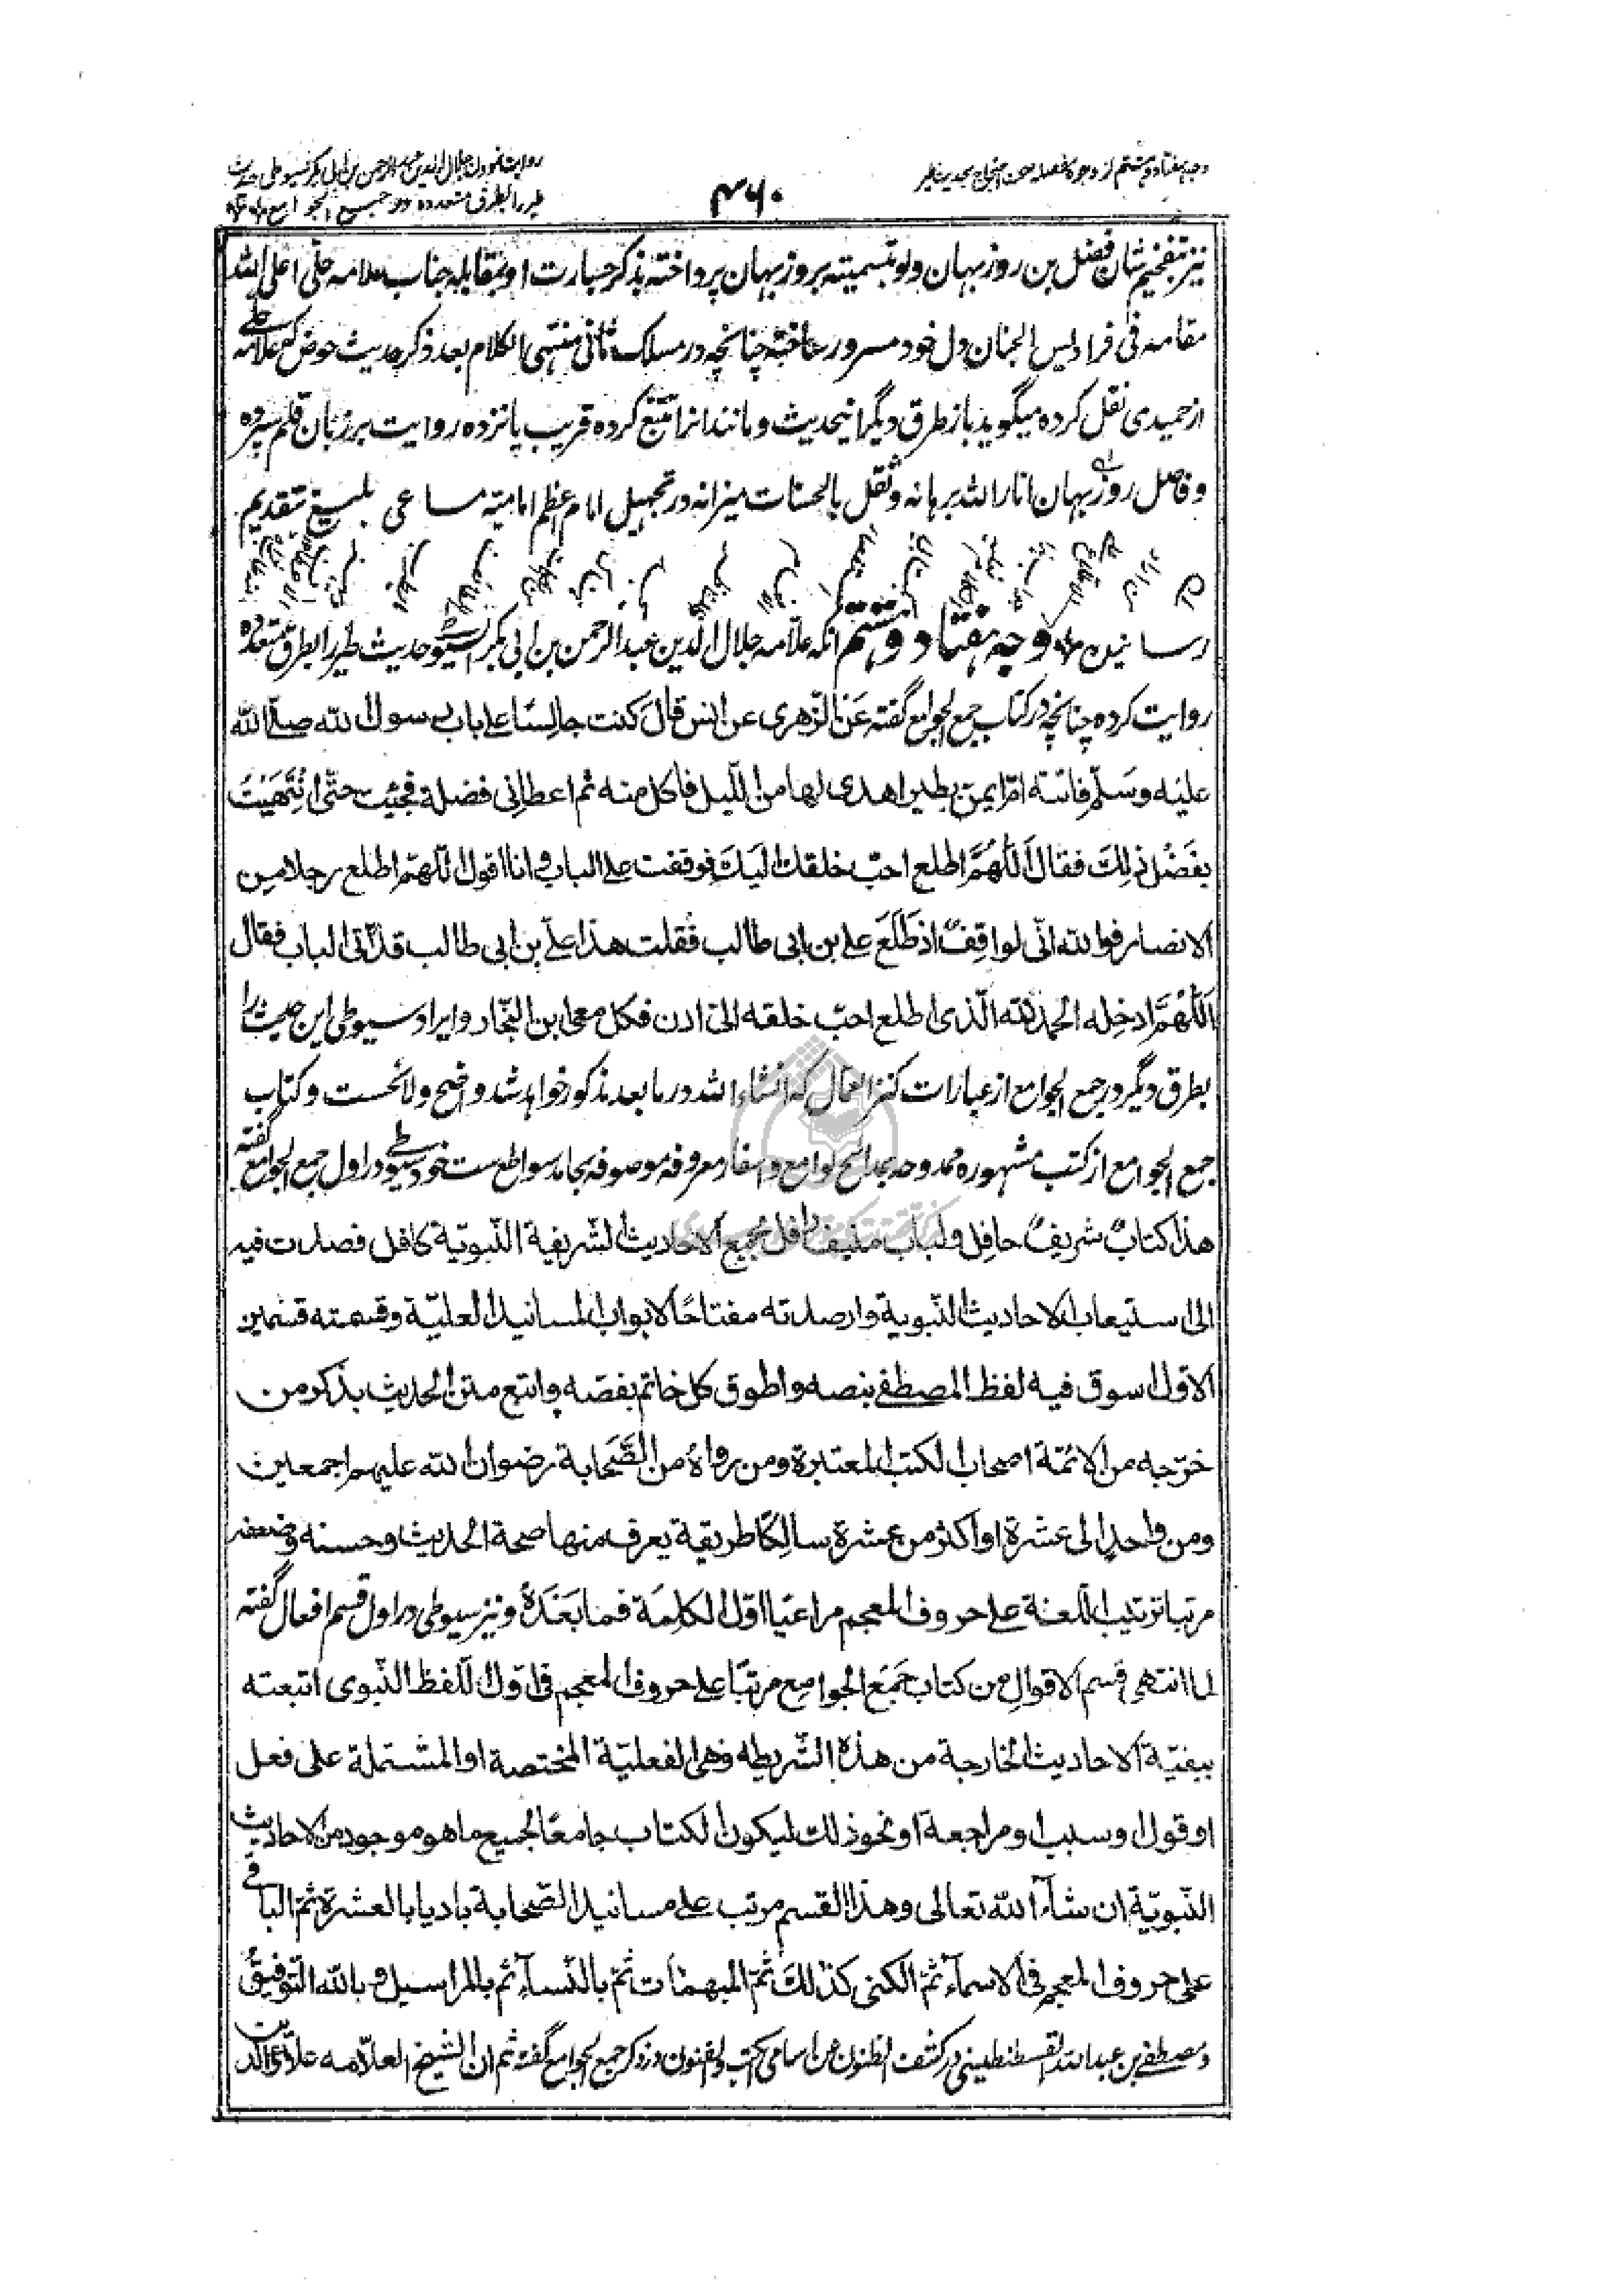 وجه هفتاد و هشتم از وجوه مفصله صحت احتجاج بحدیث طیر
۴۶۰
روایت نمودن جلال الدین عبد الرحمن بن ابی بکر سیوطی حدیث
طیر را بطرق متعدده در جمع الجوامع
نیز بتفخیم شان فضل بن روزبهان ولو بتسمیته بروزبهان پرداخته بذکر جسارت او بمقابله جناب علامه حلی اعلی الله
مقامه فی فرادیس الجنان دل خود مسرور ساخته چنانچه در مسلک ثانی منتهی الکلام بعد ذکر حدیث حوض که علامه حلی
از حمیدی نقل کرده میگوید باز طرق دیگر اینحدیث و مانند انرا تتبع کرده قریب پانزده روایت بر زبان قلم سپرده
و فاضل روزبهان انار الله برهانه و ثقل بالحسنات میزانه در تجهیل امام اعظم امامیة مساعی بلیغ بتقدیم
رسانیده وجه هفتاد و هشتم انکه علامه جلال الدین عبد الرحمن بن ابی بکر السیوطی حدیث طیر را بطرق متعدده
روایت کرده چنانچه در کتاب جمع الجوامع گفته عن الزهری عن انس قال کنت جالسا علی باب رسول الله صلی الله
علیه وسلم فاتته ام ایمن بطیر اهدی لها من اللیل فاکل منه ثم اعطانی فضلة فجئت حتی انتهیت
بفضل ذلک فقال اللهم اطلع احب خلقک الیک فوقفت علی الباب وانا اقول اللهم اطلع رجلا من
الانصار فوالله انی لواقف اذ طلع علی بن ابی طالب فقلت هذا علی بن ابی طالب قد اتی الباب فقال
اللهم ادخله الحمد لله الذی اطلع احب خلقه الی ادن فکل معی ابن النجار وایراد سیوطی این حدیث را
بطرق دیگر در جمع الجوامع از عبارات کنز العمال که انشاء الله در ما بعد مذکور خواهد شد واضح ولائحست و کتاب
جمع الجوامع از کتب مشهوره ممدوحه بمدائح لوامع و اسفار معروفه موصوفه بمحامد سواطع ست خود سیوطی در اول جمع الجوامع گفته
هذا کتاب شریف حافل ولباب منیف رافل بجمیع الاحادیث الشریفة النبویة کافل قصدت فیه
الی استیعاب الاحادیث النبویة وارصدته مفتاحا لابواب المسانید العلیة وقسمته قسمین
الاول اسوق فیه لفظ المصطفی بنصه واطوق کل خاتم بفصه واتبع متن الحدیث بذکر من
خرجه من الائمة اصحاب الکتب المعتبرة ومن رواه من الصحابة رضوان الله علیهم اجمعین
ومن واحد الی عشرة او اکثر من عشرة سالکا طریقة یعرف منها صحة الحدیث وحسنه وضعفه
مرتبا ترتیب اللغة علی حروف المعجم مراعیا اول الکلمة فما بعده ونیز سیوطی در اول قسم افعال گفته
لما انتهی قسم الاقوال من کتاب جمع الجوامع مرتبا علی حروف المعجم فی اول اللفظ النبوی اتبعته
ببقیة الاحادیث الخارجة من هذه الشریطه وهی الفعلیة المختصة او المشتملة علی فعل
او قول او سبب او مراجعة او نحو ذلک لیکون الکتاب جامعا لجمیع ما هو موجود من الاحادیث
النبویة ان شاء الله تعالی وهذا القسم مرتب علی مسانید الصحابة بادیا بالعشرة ثم الباقی
علی حروف المعجم فی الاسماء ثم الکنی کذلک ثم المبهمات ثم بالنساء ثم بالمراسیل وبالله التوفیق
ومصطفی بن عبد الله القسطنطینی در کشف الظنون عن اسامی الکتب والفنون در ذکر جمع الجوامع گفته ثم ان الشیخ العلامه علاء الدین